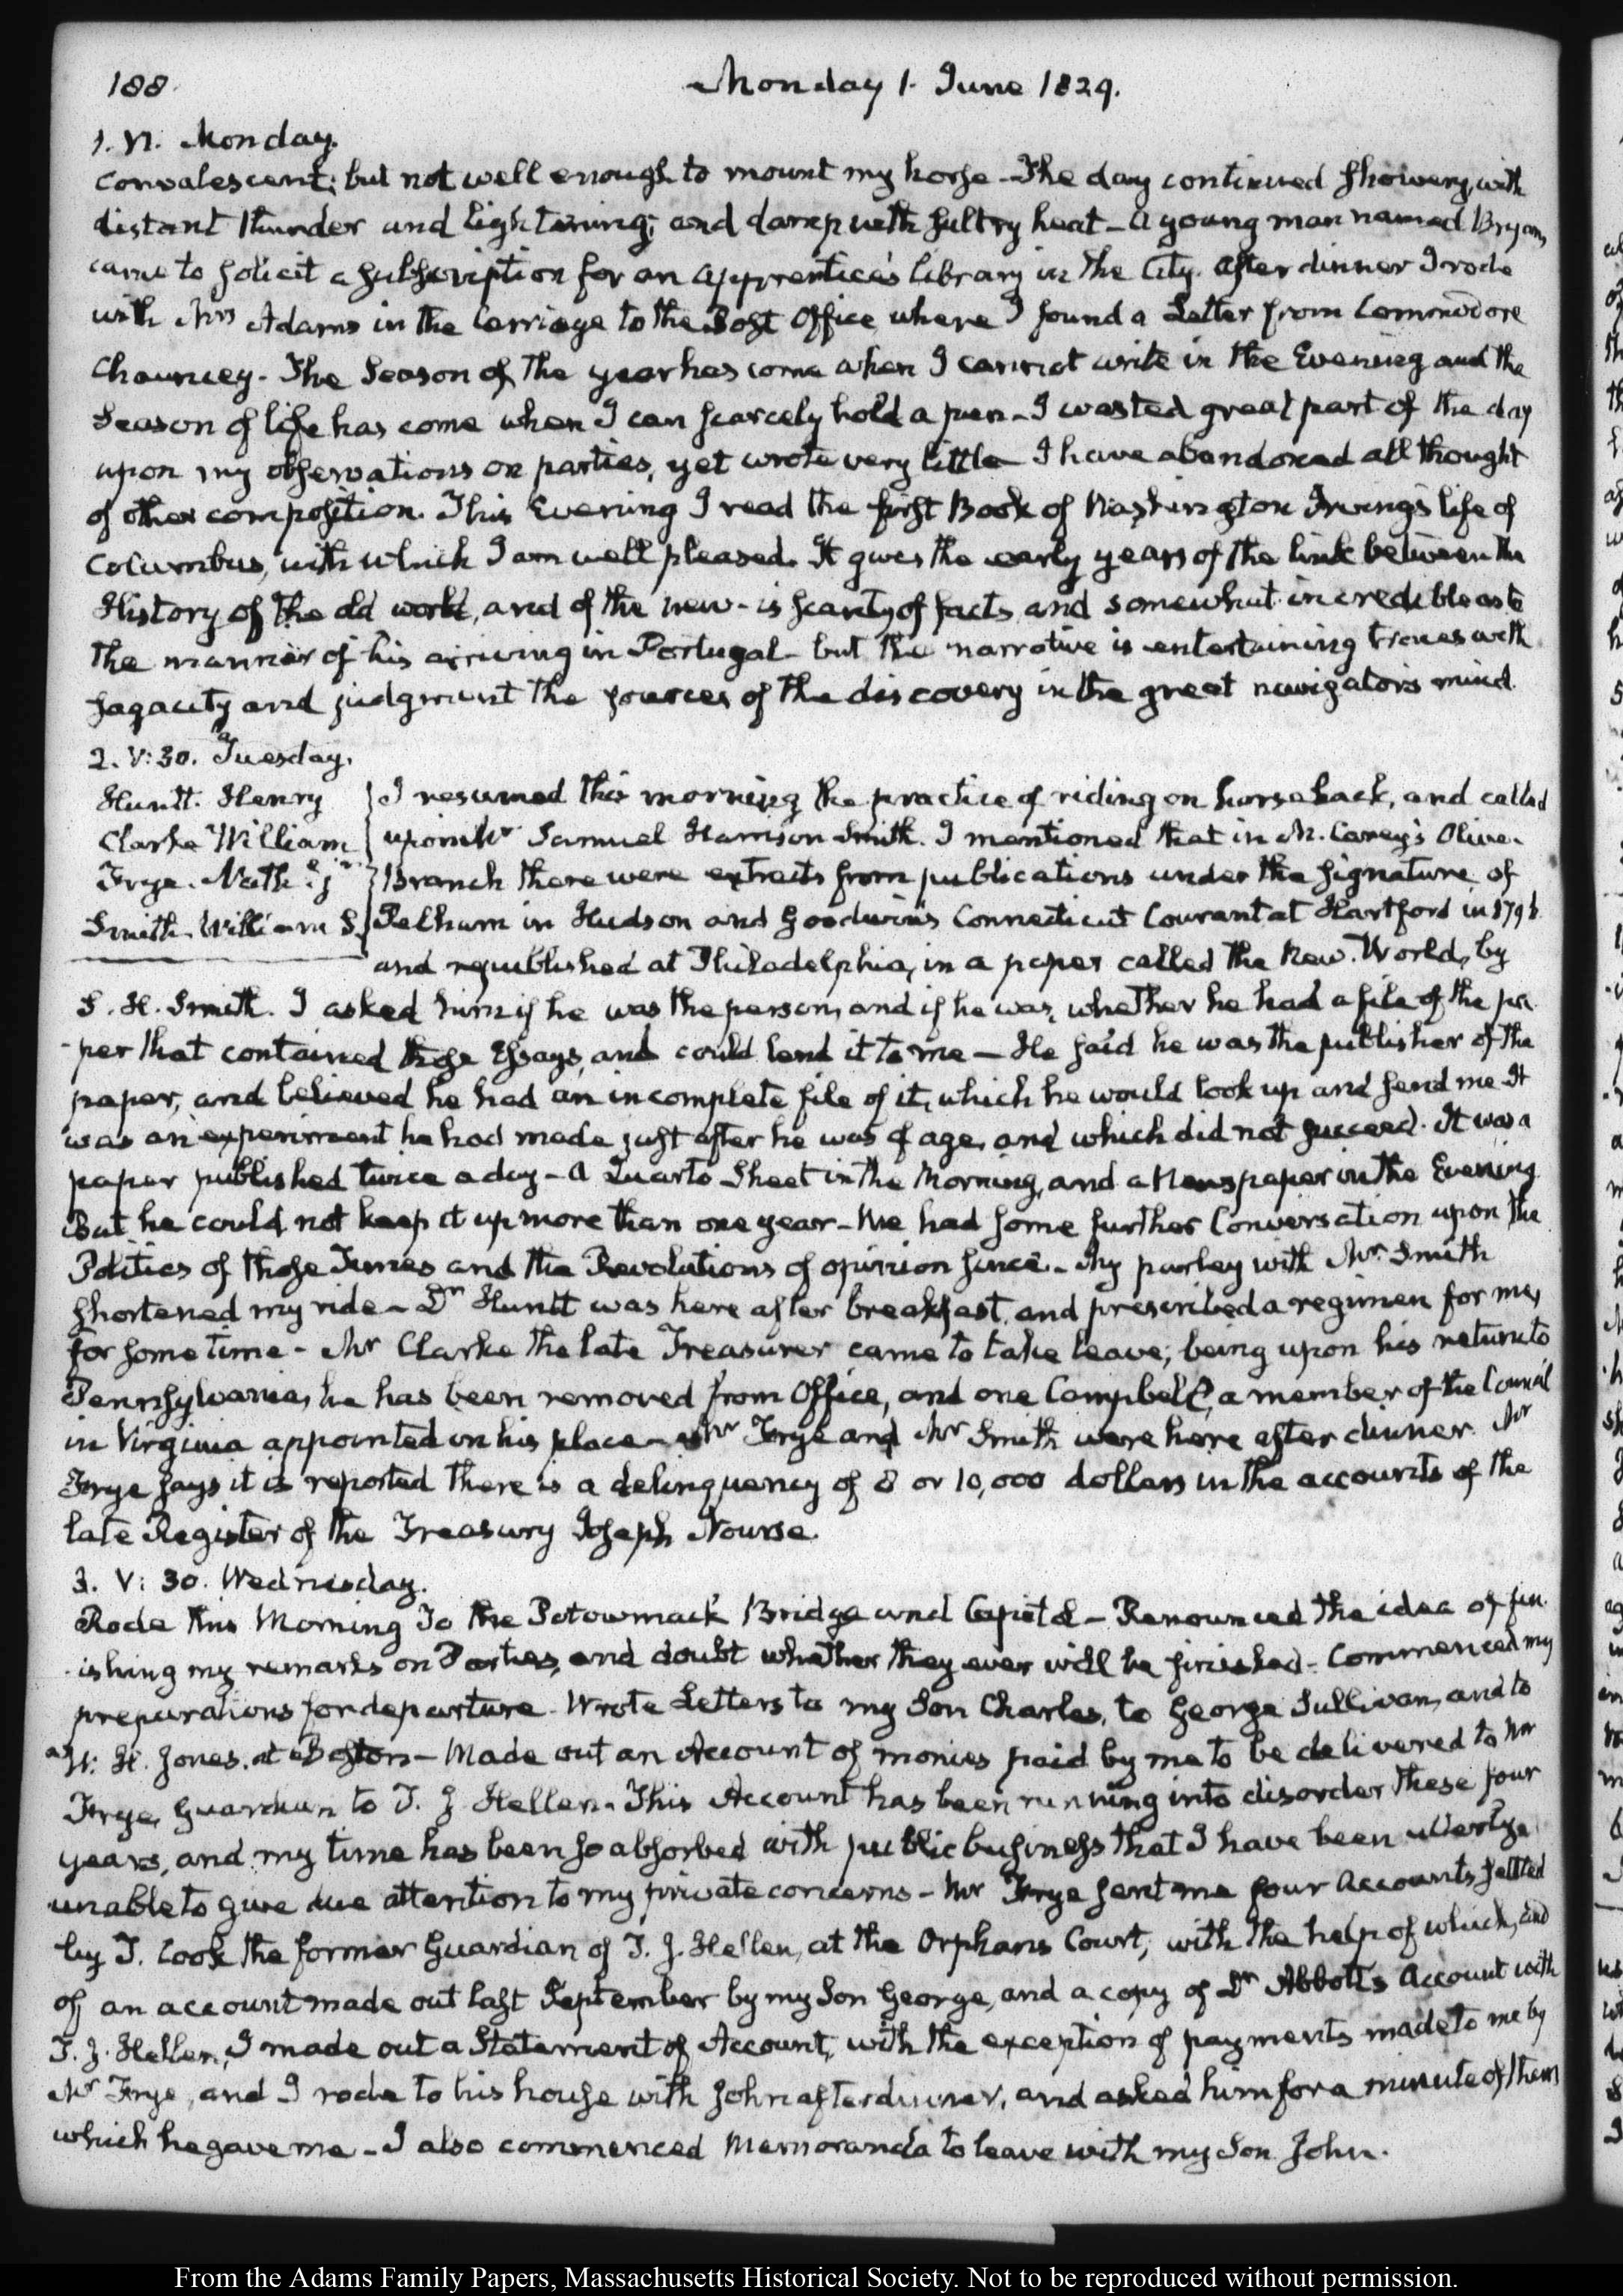 188.
Monday 1. June 1829.
1. VI. Monday.
Convalescent; but not well enough to mount my horse - The day continued showery, with
distant thunder and lightening; and damp with sultry heat - A young man named Bryan,
came to solicit a subscription for an apprentice's library in the City. After dinner I rode
with Mrs Adams in the Carriage to the Post Office where I found a Letter from Commodore
Chauncey - The Season of the year has come when I cannot write in the Evening and the
Season of life has come when I can scarcely hold a pen - I wasted great part of the day
upon my observations on parties, yet wrote very little - I have abandoned all thought
of other composition. This Evening I read the first Book of Washington Irving's life of
Columbus, with which I am well pleased. It gives the early years of the link between the
History of the old world, and of the new - is scanty of facts, and somewhat incredible as to
the manner of his arriving in Portugal - but the narrative is entertaining traces with
sagacity and judgment the sources of the discovery in the great navigator's mind.
2. V:30. Tuesday.
Huntt. Henry
Clarke William
Frye. Nathl. jr
Smith. William S.
I resumed this morning the practice of riding on horseback, and called
upon Mr Samuel Harrison Smith. I mentioned that in M. Carey's Olive-
Branch there were extracts from publications under the signature of
Pelham in Hudson and Goodwin's Connecticut Courant at Hartford in 1796
and republished at Philadelphia, in a paper called the New World, by
S. H. Smith. I asked him if he was the person, and if he was, whether he had a file of the pa-
-per that contained those Essays, and could lend it to me - He said he was the publisher of the
paper, and believed he had an incomplete file of it, which he would look up and send me - It
was an experiment he had made just after he was of age, and which did not succeed. It was a
paper published twice a day - A Quarto Sheet in the Morning, and a Newspaper in the Evening
But he could not keep it up more than one year - We had some further Conversation upon the
Politics of those Times and the Revolutions of opinion since - My parley with Mr Smith
shortened my ride - Dr Huntt was here after breakfast, and prescribed a regimen for me,
for some time - Mr Clarke the late Treasurer came to take leave; being upon his return to
Pennsylvania, he has been removed from Office, and one Campbell, a member of the Council
in Virginia appointed in his place - Mr Frye and Mr Smith were here after dinner. Mr
Frye says it is reported there is a delinquency of 8 or 10,000 dollars in the accounts of the
late Register of the Treasury Joseph Nourse.
3. V:30. Wednesday.
Rode this Morning to the Potowmack Bridge and Capitol - Renounced the idea of fin-
-ishing my remarks on Parties, and doubt whether they ever will be finished - Commenced my
preparations for departure - Wrote Letters to my Son Charles, to George Sullivan, and to
W. H. Jones, at Boston - Made out an Account of monies paid by me to be delivered to Mr
Frye, Guardian to T. J. Hellen - This Account has been running into disorder these four
years, and my time has been so absorbed with public business that I have been utterly
unable to give due attention to my private concerns - Mr Frye sent me four Accounts settled
by T. Cook the former Guardian of T. J. Hellen, at the Orphans Court; with the help of which, and
of an account made out last September by my Son George, and a copy of Dr Abbot's Account with
T. J. Hellen, I made out a Statement of Account, with the exception of payments made to me by
Mr Frye, and I rode to his house with John after dinner, and asked him for a minute of them
which he gave me - I also commenced Memoranda to leave with my Son John.
From the Adams Family Papers, Massachusetts Historical Society. Not to be reproduced without permission.